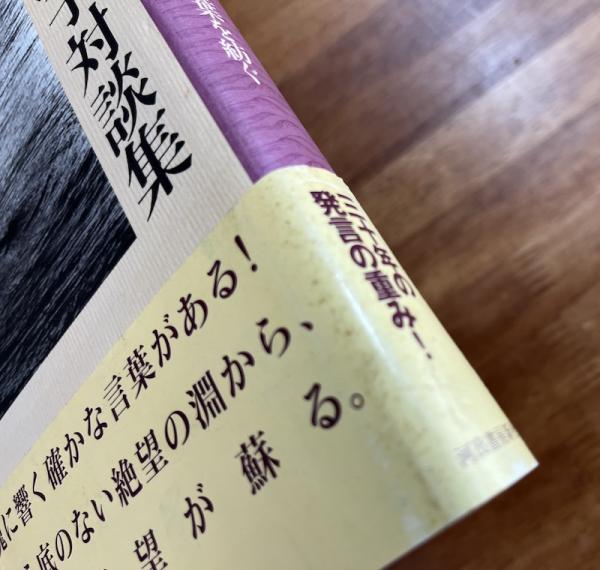 対談集
を紡ぐ
三十年の
発言の重み！
に響く確かな言葉がある！
底のない絶望の淵から、
望が蘇る。